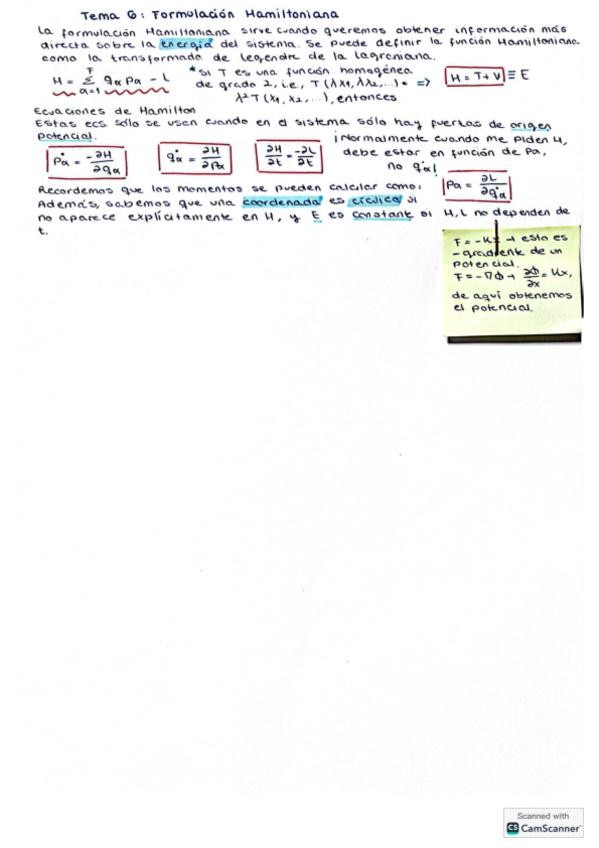 Tema 6: Formulación Hamiltoniana
La formulación Hamiltoniana sirve cuando queremos obtener información más
directa sobre la energía del sistema. Se puede definir la función Hamiltoniana
como la transformada de Legendre de la Lagraniana.
H = Σ_{α=1}^{F} q̇α pα - L
*Si T es una función homogénea
de grado 2, i.e., T(λx1, λx2,...) =
λ²T(x1, x2,...), entonces
=> H = T+V ≡ E
Ecuaciones de Hamilton
Estas ecs sólo se usen cuando en el sistema sólo hay fuerzas de origen
potencial.
ṗα = -∂H/∂qα
q̇α = ∂H/∂pα
∂H/∂t = -∂L/∂t
¡Normalmente cuando me piden H,
debe estar en función de pα,
no q̇α!
Recordemos que los momentos se pueden calcular como:
pα = ∂L/∂q̇α
Además, sabemos que una coordenada es cíclica si
no aparece explícitamente en H, y E es constante si H, L no dependen de
t.
F = -kx → esto es
-gradiente de un
potencial.
F = -∇Φ → ∂Φ/∂x = kx,
de aquí obtenemos
el potencial.
Scanned with
CS CamScanner